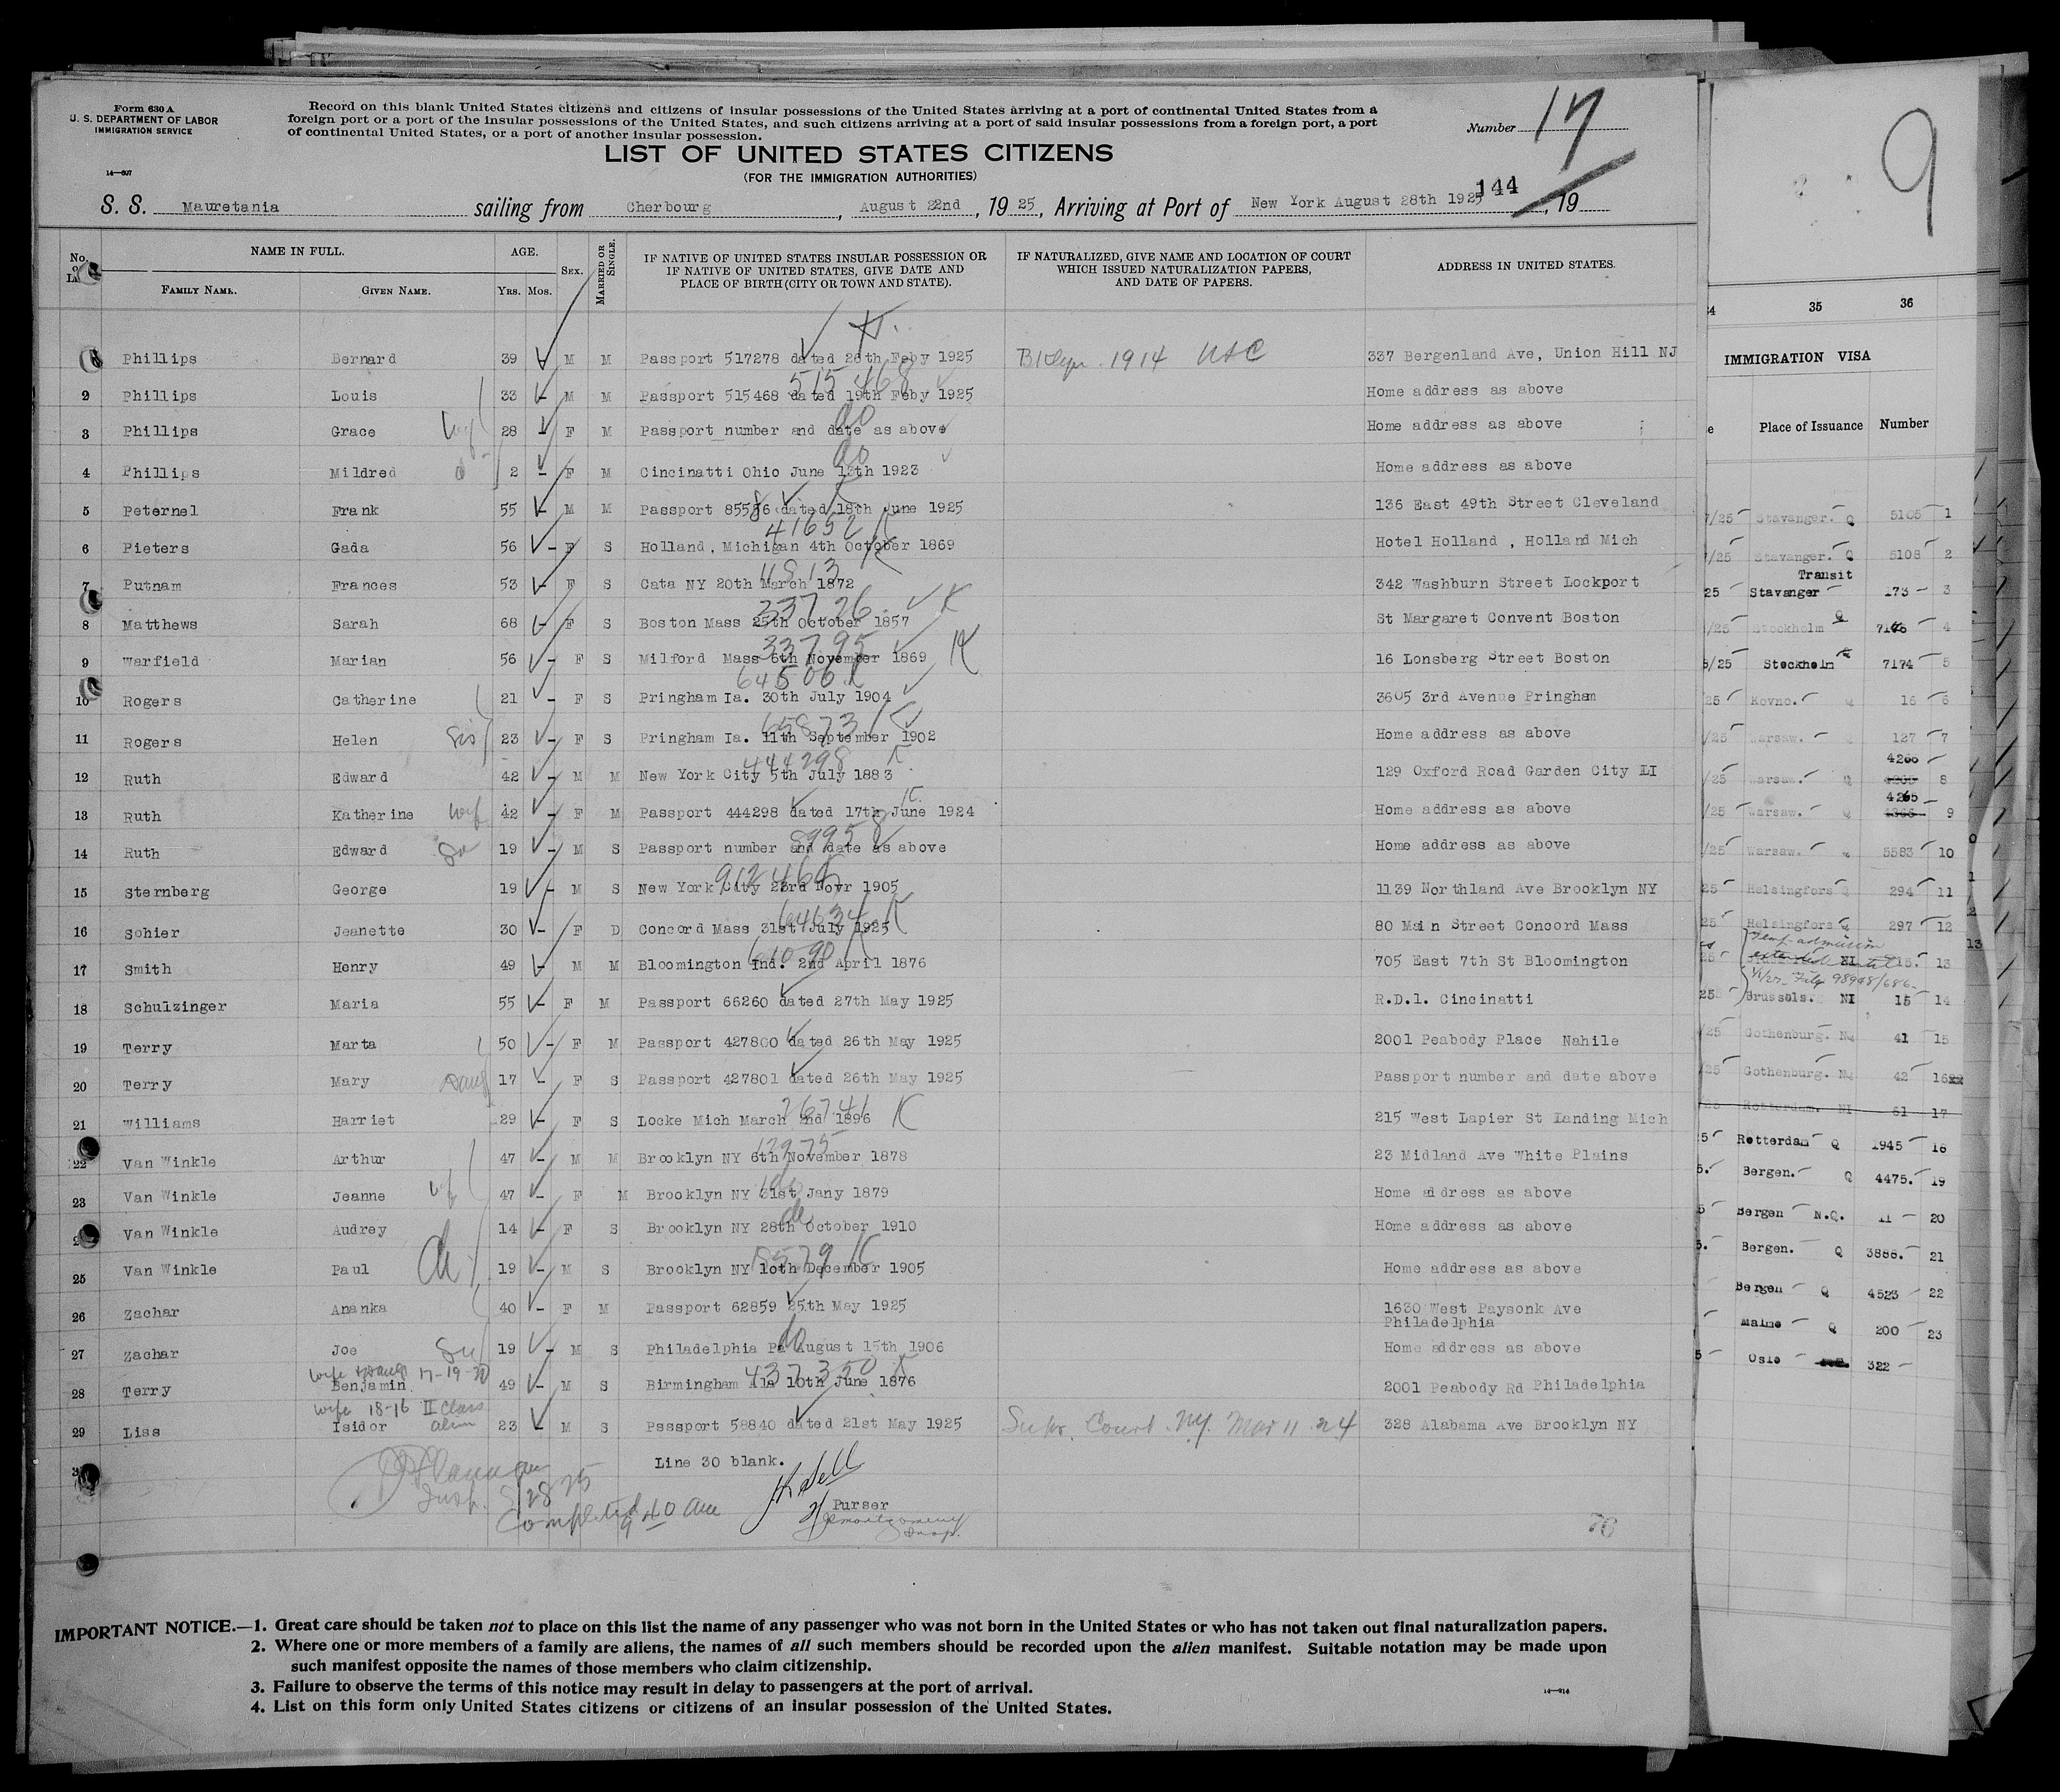 Form 630 A
U. S. DEPARTMENT OF LABOR
IMMIGRATION SERVICE
14—607
Record on this blank United States citizens and citizens of insular possessions of the United States arriving at a port of continental United States from a
foreign port or a port of the insular possessions of the United States, and such citizens arriving at a port of said insular possessions from a foreign port, a port
of continental United States, or a port of another insular possession.
Number 17
LIST OF UNITED STATES CITIZENS
(FOR THE IMMIGRATION AUTHORITIES)
144
S. S. Mauretania sailing from Cherbourg, August 22nd, 1925, Arriving at Port of New York August 28th 1925, 19
NAME IN FULL. AGE. SEX. MARRIED OR SINGLE. IF NATIVE OF UNITED STATES INSULAR POSSESSION OR IF NATIVE OF UNITED STATES, GIVE DATE AND PLACE OF BIRTH (CITY OR TOWN AND STATE). IF NATURALIZED, GIVE NAME AND LOCATION OF COURT WHICH ISSUED NATURALIZATION PAPERS, AND DATE OF PAPERS. ADDRESS IN UNITED STATES.
FAMILY NAME. GIVEN NAME. YRS. MOS.
Phillips Bernard 39 M M Passport 517278 dated 26th Feby 1925 1914 USC 337 Bergenland Ave, Union Hill NJ
515468
2 Phillips Louis 33 - M M Passport 515468 dated 19th Feby 1925 Home address as above
do
3 Phillips Grace wf 28 - F M Passport number and date as above Home address as above
do
4 Phillips Mildred d 2 - F M Cincinatti Ohio June 13th 1923 Home address as above
5 Peternel Frank 55 - M M Passport 85556 dated 18th June 1925 136 East 49th Street Cleveland
41652 K
6 Pieters Gada 56 - F S Holland, Michigan 4th October 1869 Hotel Holland , Holland Mich
11813 K
7 Putnam Frances 53 - F S Cata NY 20th March 1872 342 Washburn Street Lockport
33726 K
8 Matthews Sarah 68 - F S Boston Mass 25th October 1857 St Margaret Convent Boston
33795 K
9 Warfield Marian 56 - F S Milford Mass 6th November 1869 16 Lonsberg Street Boston
64506 K
10 Rogers Catherine 21 - F S Pringham Ia. 30th July 1904 3605 3rd Avenue Pringham
65873 K
11 Rogers Helen Sis 23 - F S Pringham Ia. 11th September 1902 Home address as above
444298 K
12 Ruth Edward 42 - M M New York City 5th July 1883 129 Oxford Road Garden City LI
13 Ruth Katherine wif 42 - F M Passport 444298 dated 17th June 1924 Home address as above
14 Ruth Edward 19 - M S Passport number and date as above Home address as above
15 Sternberg George 19 - M S New York City 23rd Novr 1905 1139 Northland Ave Brooklyn NY
64634 K
16 Sohier Jeanette 30 - F D Concord Mass 31st July 1925 80 Main Street Concord Mass
17 Smith Henry 49 - M M Bloomington Ind. 2nd April 1876 705 East 7th St Bloomington
18 Schulzinger Maria 55 - F M Passport 66260 dated 27th May 1925 R.D.1. Cincinatti
19 Terry Marta 50 - F M Passport 427800 dated 26th May 1925 2001 Peabody Place Nahile
20 Terry Mary Daug 17 - F S Passport 427801 dated 26th May 1925 Passport number and date above
26741 K
21 Williams Harriet 29 - F S Locke Mich March 2nd 1896 215 West Lapier St Landing Mich
12975
22 Van Winkle Arthur 47 - M M Brooklyn NY 6th November 1878 23 Midland Ave White Plains
23 Van Winkle Jeanne wf 47 - F M Brooklyn NY 31st Jany 1879 Home address as above
do
Van Winkle Audrey 14 - F S Brooklyn NY 28th October 1910 Home address as above
K
25 Van Winkle Paul 19 - M S Brooklyn NY 10th December 1905 Home address as above
26 Zachar Ananka 40 - F M Passport 62859 25th May 1925 1630 West Paysonk Ave
Philadelphia
do
27 Zachar Joe 19 - M S Philadelphia Pa August 15th 1906 Home address as above
437350 K
28 Terry Benjamin 49 - M S Birmingham Ala 10th June 1876 2001 Peabody Rd Philadelphia
wife 18-16 II Class
29 Liss Isidor alien 23 - M S Passport 58840 dated 21st May 1925 Supr. Court. N.Y. Mar 11 24 328 Alabama Ave Brooklyn NY
Line 30 blank.
Insp. 8/28/25
Completed 9 40 am
Purser
Montgomery
Insp.
76
IMPORTANT NOTICE.—1. Great care should be taken not to place on this list the name of any passenger who was not born in the United States or who has not taken out final naturalization papers.
2. Where one or more members of a family are aliens, the names of all such members should be recorded upon the alien manifest. Suitable notation may be made upon
such manifest opposite the names of those members who claim citizenship.
3. Failure to observe the terms of this notice may result in delay to passengers at the port of arrival.
4. List on this form only United States citizens or citizens of an insular possession of the United States.
9
35 36
IMMIGRATION VISA
Place of Issuance Number
/25 Stavanger. Q 5105 1
/25 Stavanger. Q 5108 2
Transit
25 Stavanger 173 3
/25 Stockholm Q 4
5/25 Stockholm 7174 5
25 Kovno. Q 16 6
/25 Warsaw. 127 7
4266
/25 Warsaw. Q 8
4265
/25 Warsaw. Q 9
/25 Warsaw. 5583 10
25 Helsingfors 294 11
25 Helsingfors Q 297 12
Temp admission
extended until
NI 15. 13
File 98948/686
25 Brussels. NI 15 14
/25 Gothenburg. NQ 41 15
/25 Gothenburg. NQ 42 16
25 Rotterdam. NI 61 17
5 Rotterdam Q 1945 18
5. Bergen. Q 4475. 19
5 Bergen N.Q. 11 20
5. Bergen. Q 3886. 21
Bergen Q 4523 22
Malmo Q 200 23
5 Oslo 322